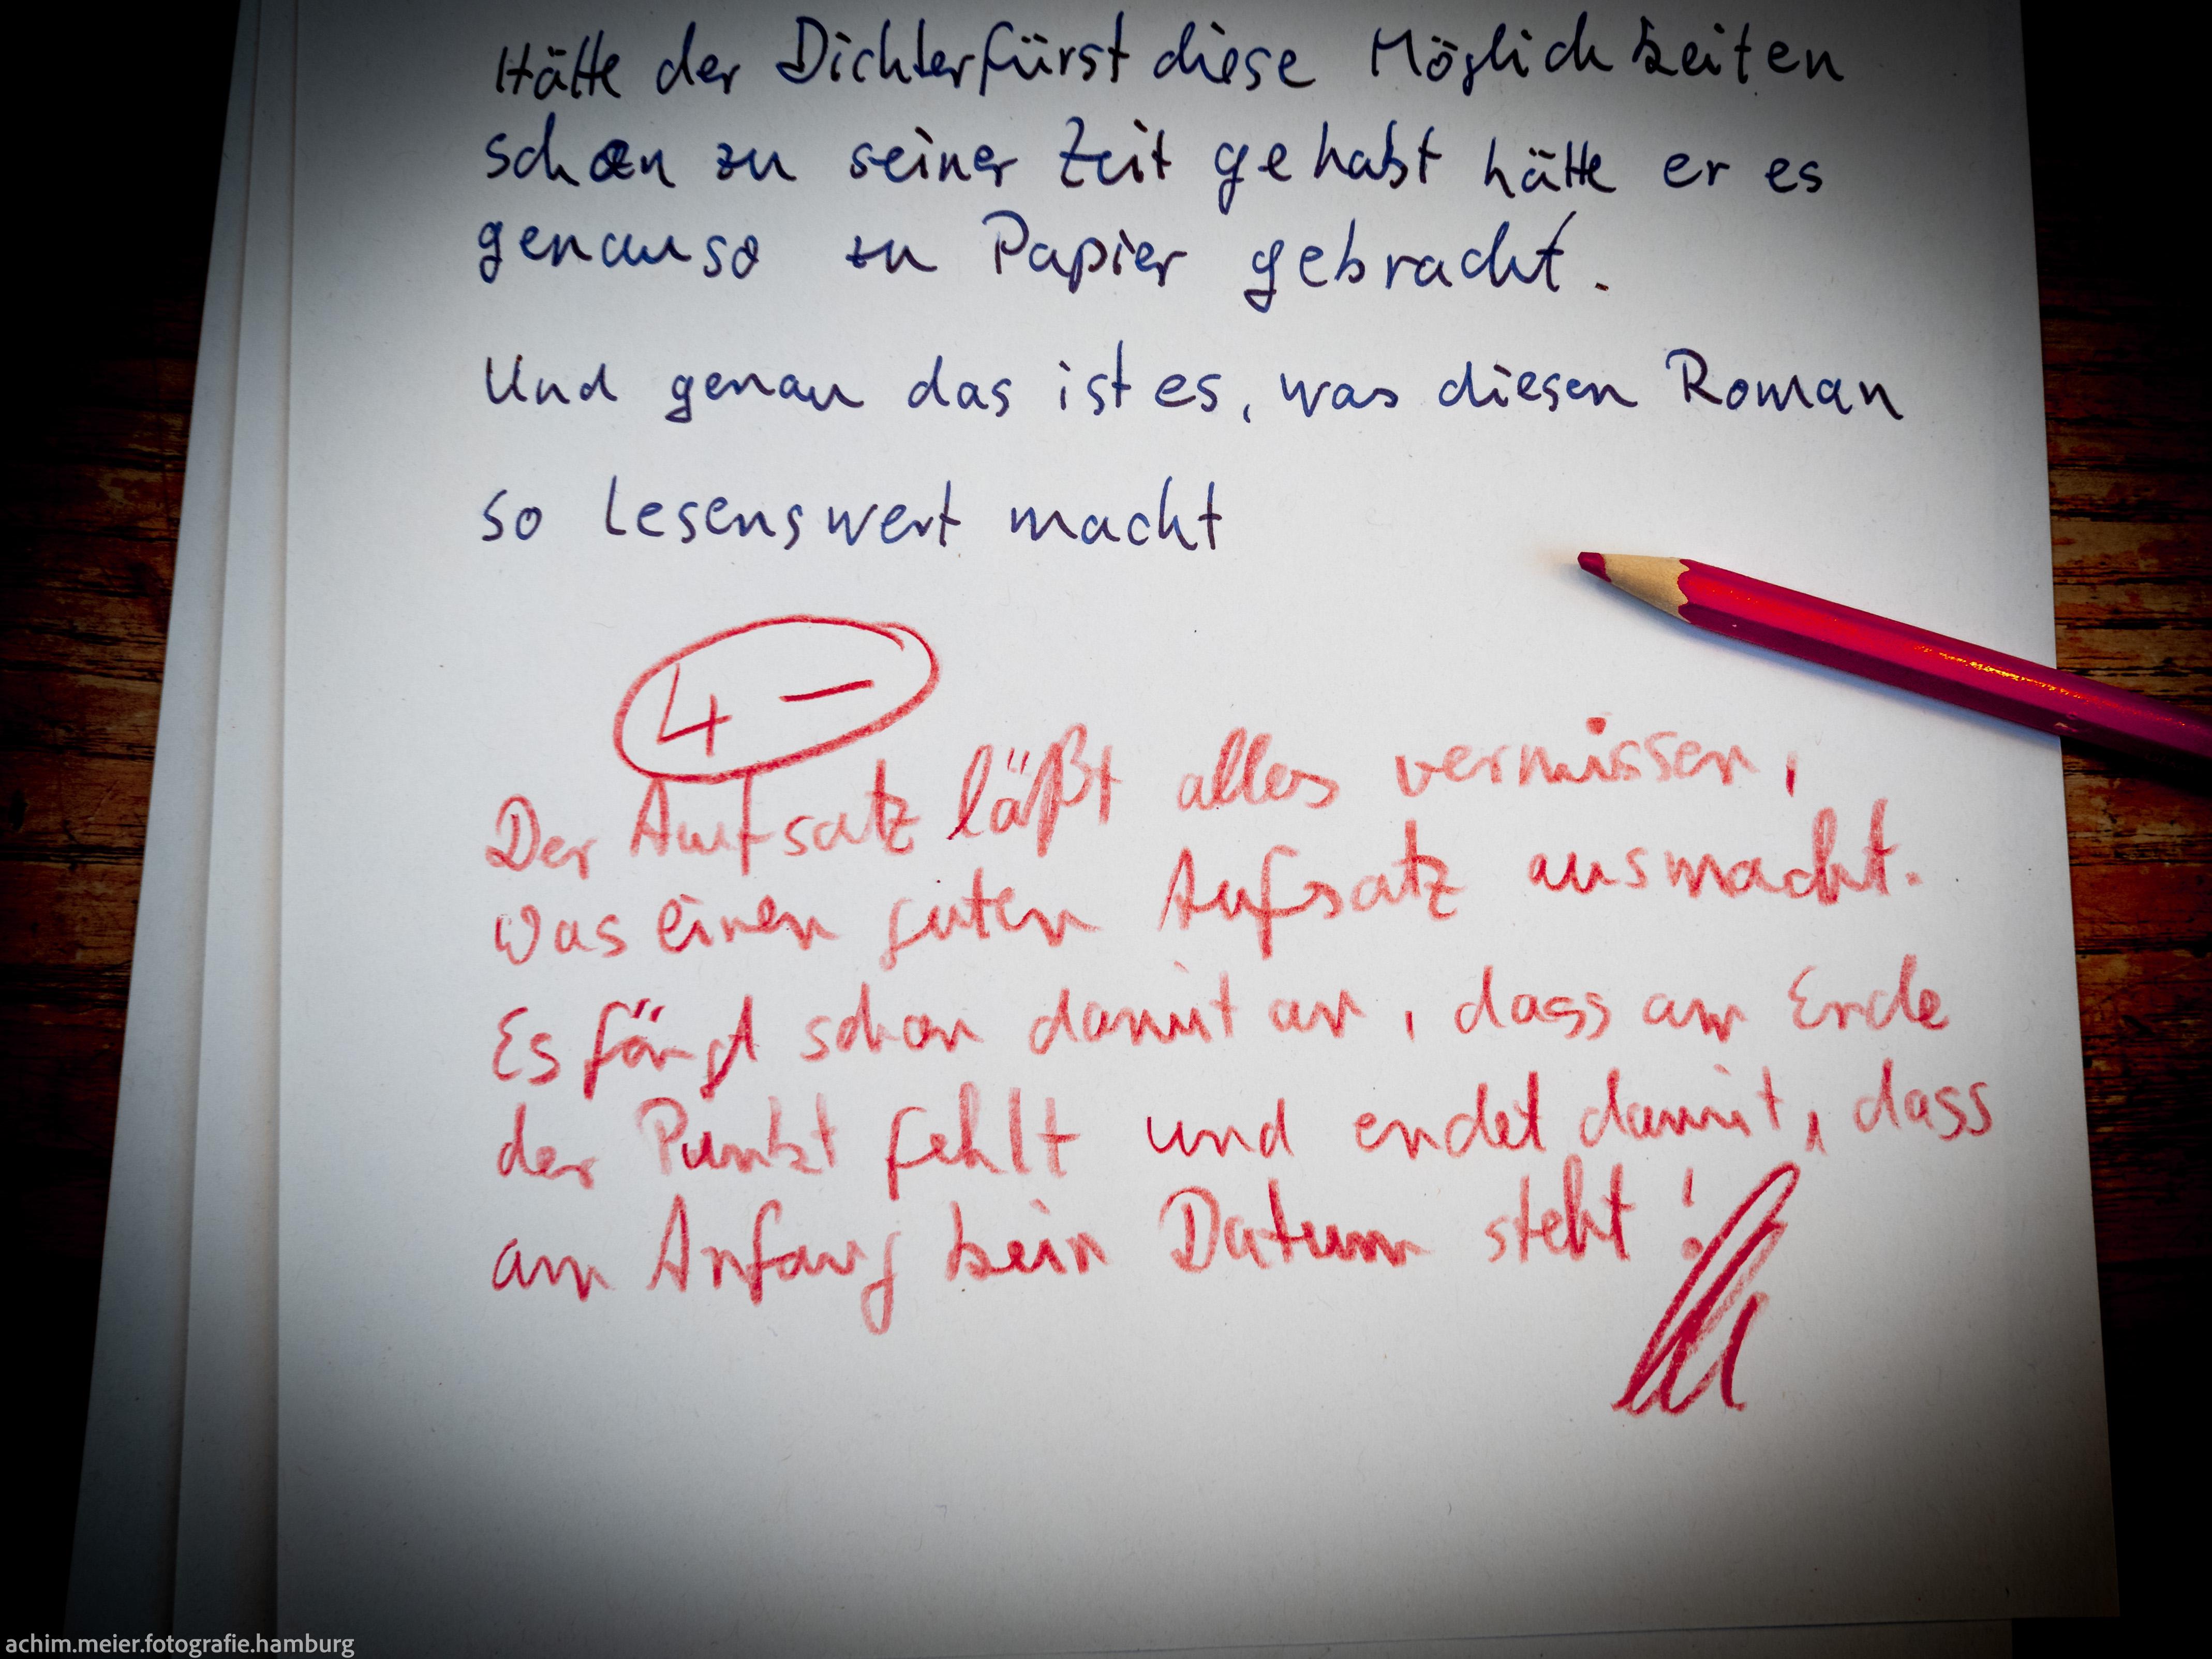 Hätte der Dichterfürst diese Möglichkeiten
schon zu seiner Zeit gehabt hätte er es
genauso zu Papier gebracht.
Und genau das ist es, was diesen Roman
so lesenswert macht
4 -
Der Aufsatz läßt alles vermissen,
was einen guten Aufsatz ausmacht.
Es fängt schon damit an, dass am Ende
der Punkt fehlt und endet damit, dass
am Anfang kein Datum steht!
achim.meier.fotografie.hamburg